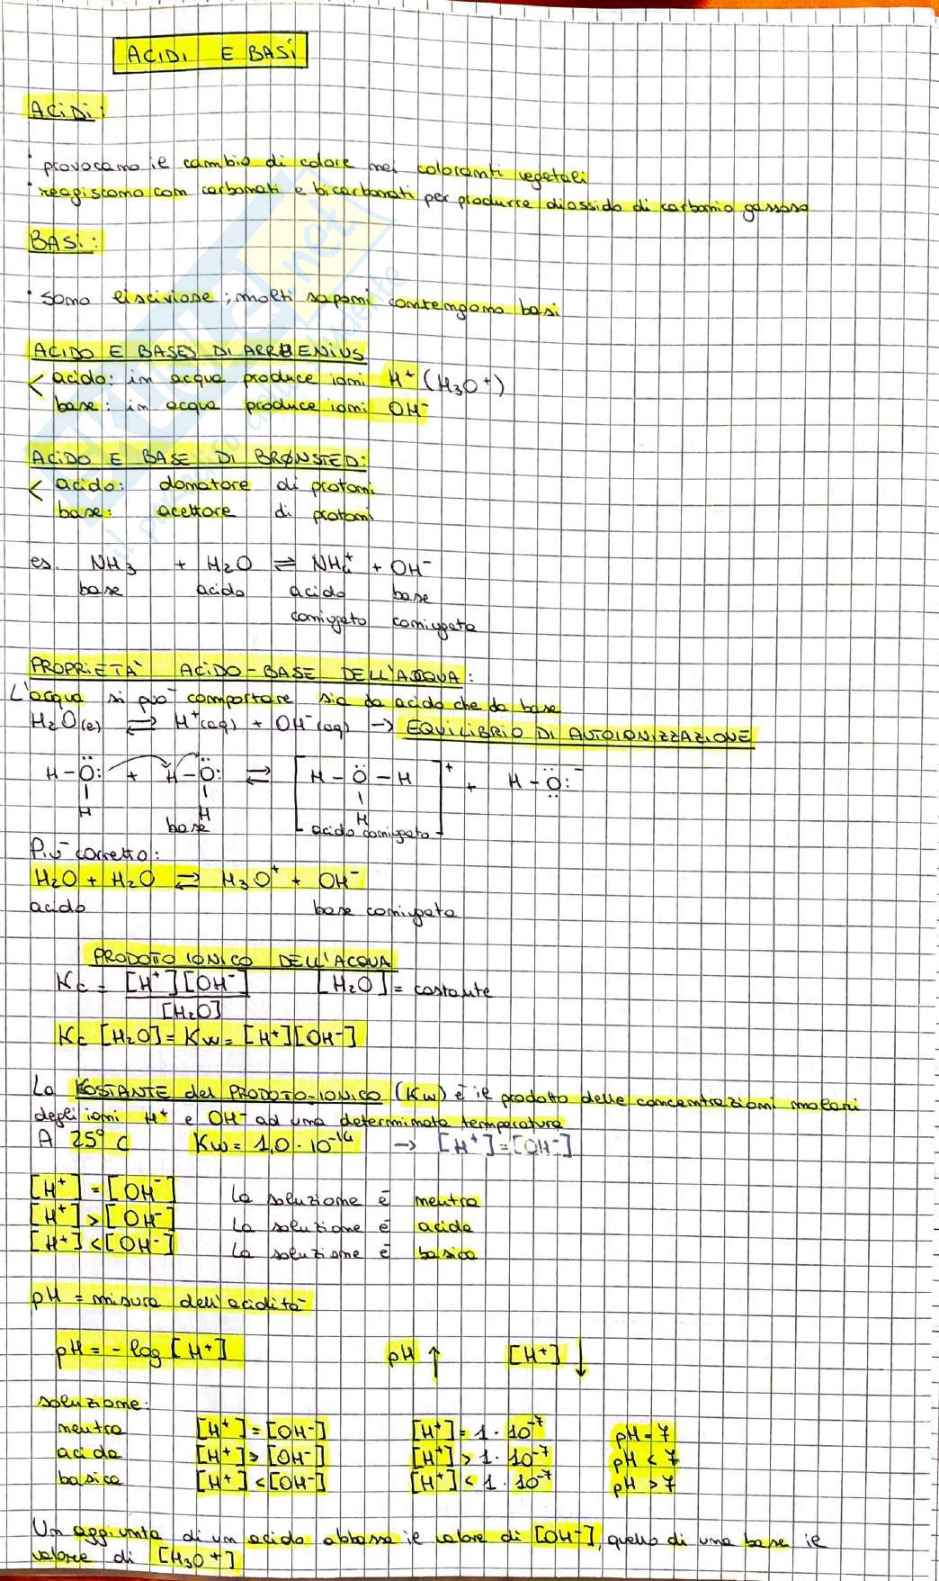 ACIDI E BASI
ACIDI:
· provocano il cambio di colore nei coloranti vegetali
· reagiscono con carbonati e bicarbonati per produrre diossido di carbonio gassoso
BASI:
· sono lisciviose; molti saponi contengono basi
ACIDO E BASE DI ARRHENIUS
< acido: in acqua produce ioni H⁺ (H₃O⁺)
base: in acqua produce ioni OH⁻
ACIDO E BASE DI BRØNSTED:
< acido: donatore di protoni
base: accettore di protoni
es. NH₃ + H₂O ⇌ NH₄⁺ + OH⁻
base acido acido base
coniugato coniugata
PROPRIETÀ ACIDO-BASE DELL'ACQUA:
L'acqua si può comportare sia da acido che da base
H₂O(l) ⇌ H⁺(aq) + OH⁻(aq) → EQUILIBRIO DI AUTOIONIZZAZIONE
H-Ö: + H-Ö: ⇌ [H-Ö-H]⁺ + H-Ö:⁻
H H H
base acido coniugato
Più corretto:
H₂O + H₂O ⇌ H₃O⁺ + OH⁻
acido base coniugata
PRODOTTO IONICO DELL'ACQUA
Kc = [H⁺][OH⁻] / [H₂O] [H₂O] = costante
Kc [H₂O] = Kw = [H⁺][OH⁻]
La COSTANTE del PRODOTTO IONICO (Kw) è il prodotto delle concentrazioni molari
degli ioni H⁺ e OH⁻ ad una determinata temperatura
A 25° C Kw = 1,0 · 10⁻¹⁴ → [H⁺] = [OH⁻]
[H⁺] = [OH⁻] La soluzione è neutra
[H⁺] > [OH⁻] La soluzione è acida
[H⁺] < [OH⁻] La soluzione è basica
pH = misura dell'acidità
pH = - log [H⁺] pH ↑ [H⁺] ↓
soluzione:
neutra [H⁺] = [OH⁻] [H⁺] = 1 · 10⁻⁷ pH = 7
acida [H⁺] > [OH⁻] [H⁺] > 1 · 10⁻⁷ pH < 7
basica [H⁺] < [OH⁻] [H⁺] < 1 · 10⁻⁷ pH > 7
Un aggiunta di un acido abbassa il valore di [OH⁻], quello di una base il
valore di [H₃O⁺]